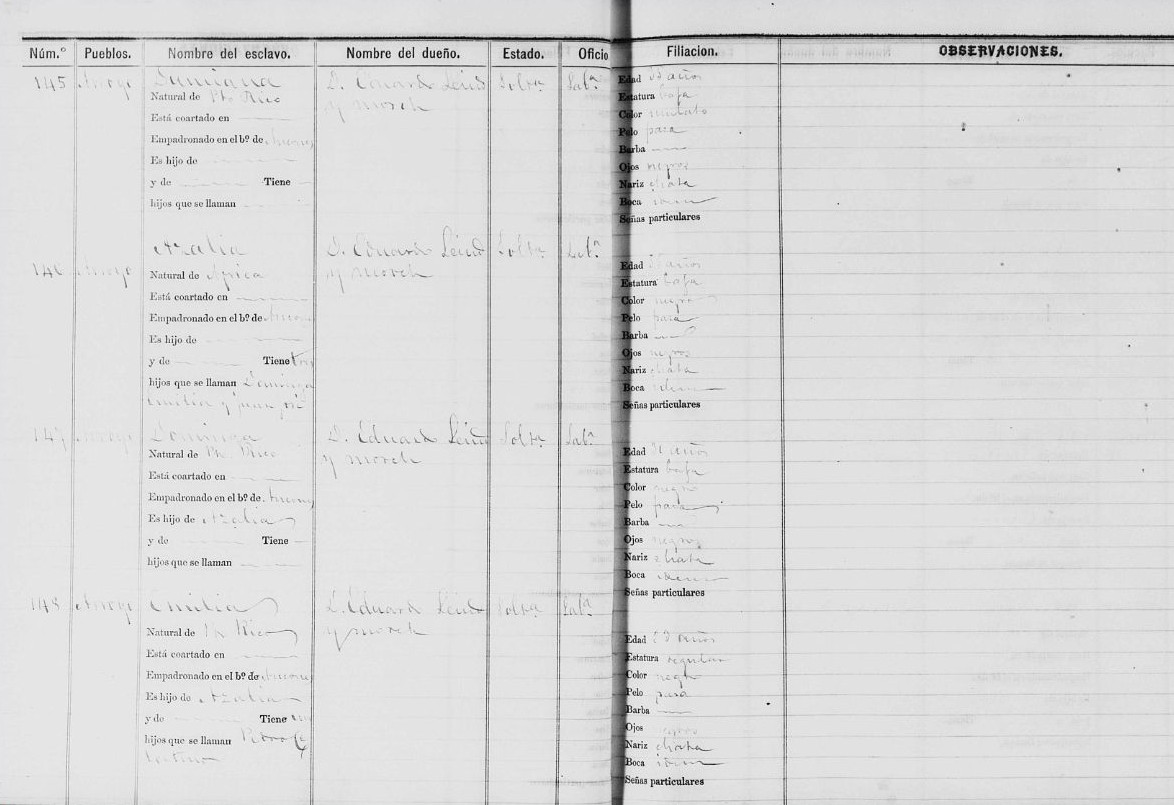 Núm.º Pueblos. Nombre del esclavo. Nombre del dueño. Estado. Oficio Filiacion. OBSERVACIONES.
145 Arroyo D. Eduard Lind Solta Labª
y Morch
Natural de Pto Rico
Está coartado en
Empadronado en el bº de
Es hijo de
y de Tiene
hijos que se llaman
Edad años
Estatura baja
Color mulato
Pelo pasa
Barba
Ojos negros
Nariz chata
Boca idem
Señas particulares
146 Arroyo Azalia D. Eduard Lind Solta Labª
y Morch
Natural de Africa
Está coartado en
Empadronado en el bº de
Es hijo de
y de Tiene tres
hijos que se llaman Dominga
Emilia y Juan José
Edad años
Estatura baja
Color negro
Pelo pasa
Barba
Ojos negros
Nariz chata
Boca idem
Señas particulares
147 Arroyo Dominga D. Eduard Lind Solta Labª
y Morch
Natural de Pto Rico
Está coartado en
Empadronado en el bº de
Es hijo de Azalia
y de Tiene
hijos que se llaman
Edad años
Estatura baja
Color negro
Pelo pasa
Barba
Ojos negros
Nariz chata
Boca idem
Señas particulares
148 Arroyo Emilia D. Eduard Lind Solta Labª
y Morch
Natural de Pto Rico
Está coartado en
Empadronado en el bº de
Es hijo de Azalia
y de Tiene
hijos que se llaman
Edad años
Estatura regular
Color negro
Pelo pasa
Barba
Ojos negros
Nariz chata
Boca idem
Señas particulares